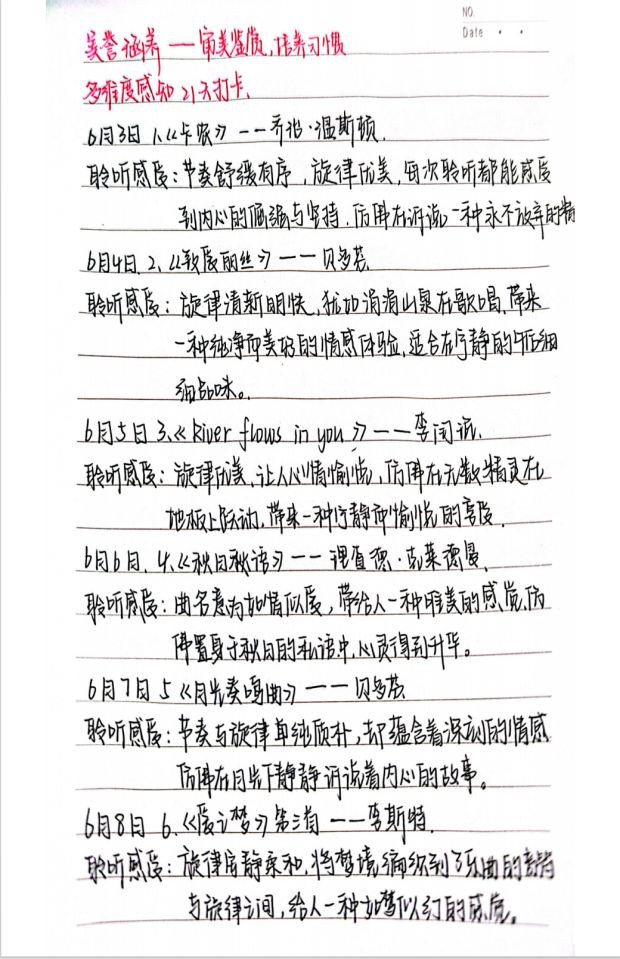 NO.
Date
美誉涵养——审美鉴赏,培养习惯
多维度感知21天打卡.
6月3日 1.《卡农》——乔治·温斯顿.
聆听感受:节奏舒缓有序,旋律优美,每次聆听都能感受
到内心的倔强与坚持.仿佛在诉说一种永不放弃的情
6月4日.2.《致爱丽丝》——贝多芬.
聆听感受:旋律清新明快,犹如涓涓山泉在歌唱,带来
一种纯净而美好的情感体验,适合在宁静的午后细
细品味。
6月5日 3.《River flows in you》——李闰珉.
聆听感受:旋律优美,让人心情愉悦,仿佛在无数精灵在
地板上跃动,带来一种宁静而愉悦的享受.
6月6日.4.《秋日私语》——理查德·克莱德曼.
聆听感受:曲名意为如情似爱,带给人一种唯美的感觉,仿
佛置身于秋日的私语中,心灵得到升华。
6月7日 5《月光奏鸣曲》——贝多芬
聆听感受:节奏与旋律单纯质朴,却蕴含着深刻的情感
仿佛在月光下静静诉说着内心的故事。
6月8日 6.《爱之梦》第三首——李斯特.
聆听感受:旋律宁静柔和,将梦境编织到了乐曲的音符
与旋律之间,给人一种如梦似幻的感觉。